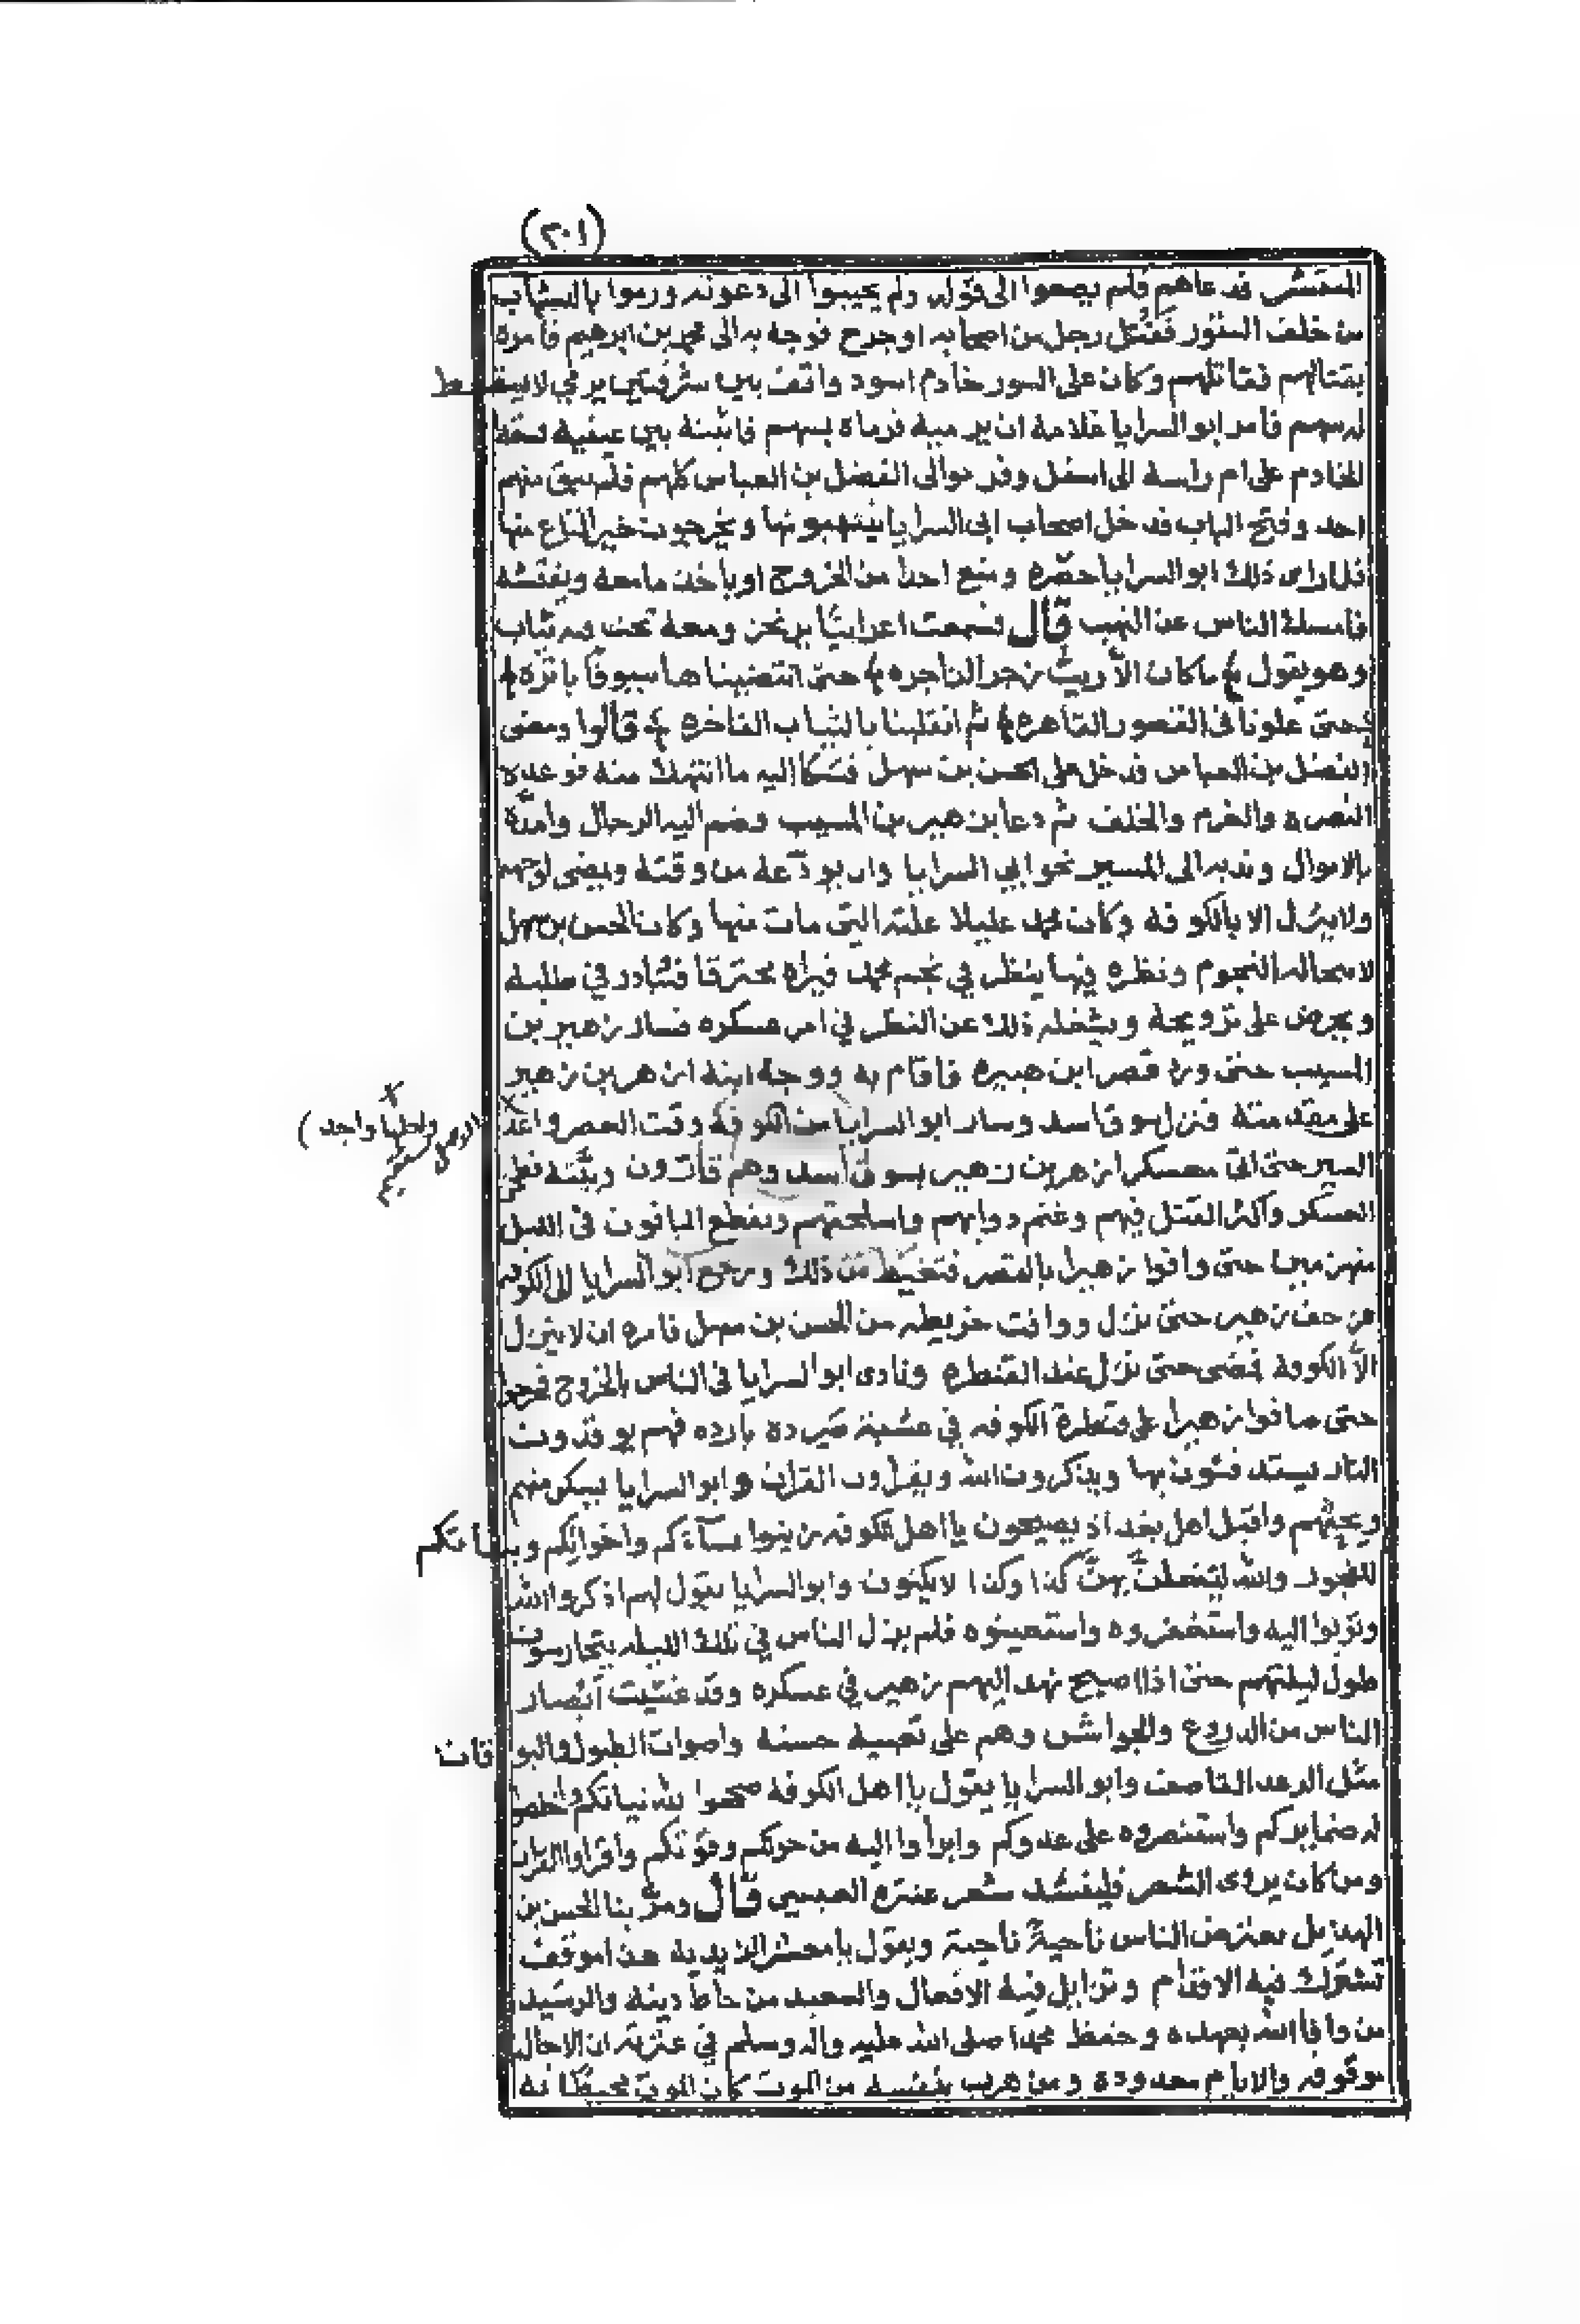 (٢٠١)
فدعاهم فلم يصغوا الى قوله ولم يجيبوا الى دعوته ورموا بالنشاب
من خلف السور فقتل رجل من اصحابه او جرح فوجه به الى محمد بن ابرهيم فامره
بقتالهم فقاتلهم وكان على السور خادم اسود واقف بين شرفتين يرمي لا يسقط
له سهم فامر ابو السرايا غلامه ان يرميه فرماه بسهم فاثبته بين عينيه
الخادم على ام راسه الى اسفل الفضل بن العباس كلهم فلم يبق منهم
احد وفتح الباب فدخل اصحاب ابى السرايا ينتهبونها ويخرجون المتاع منها
فلما راى ذلك ابو السرايا حضره ومنع احدا من الخروج او ياخذ ما معه ويفتشه
فامسك الناس عن النهب قال فسمعت اعرابيا يرتجز ومعه تخت فيه ثياب
وهو يقول ما كان الا ريث زجر الزاجره حتى انتضيناها سيوفا باتره
حتى علونا في القصور القاهره ثم انقلبنا بالثياب الفاخره قالوا ومضى
الفضل بن العباس فدخل على الحسن بن سهل فشكا اليه ما انتهك منه فوعده
النصره والغرم والخلف ثم دعا بزهير بن المسيب وضم اليه الرجال وامده
بالاموال وندبه الى المسير نحو ابي السرايا وان يودعه من وقته ويمضى لوجهه
ولا ينزل الا بالكوفه وكان محمد عليلا علته التى مات منها وكان الحسن بن سهل
النجوم ونظره فيها ينظر في نجم محمد فيراه محترقا فيبادر في طلبه
ويحرض على ترويحه ويشغله ذلك عن النظر في امر عسكره فسار زهير بن
المسيب حتى ورد قصر ابن هبيره فاقام به ووجه ابنه ازهر بن زهير
على مقدمته فنزل سوق اسد وسار ابو السرايا من الكوفة وقت العصر واغذ
السير حتى اتى معسكر ازهر بن زهير بسوق اسد وهم قارون وبيته
العسكر واكثر القتل فيهم وغنم دوابهم واسلحتهم وتقطع الباقون في الليل
منهزمين حتى وافوا زهيرا بالقصر فتغيظ من ذلك ورجع ابو السرايا الى الكوفه
زحف زهير حتى نزل ووافت خريطه من الحسن بن سهل فامره ان لا ينزل
الا الكوفة فمضى حتى نزل عند القنطره ونادى ابو السرايا في الناس بالخروج فخرجوا
حتى صافوا زهيرا على قنطرة الكوفه في عشية باردة فهم يوقدون
النار يستدفئون بها ويذكرون الله ويقرأون القران وابو السرايا يسكن منهم
ويحثهم واقبل اهل بغداد يصيحون يا اهل الكوفه زينوا نسآءكم واخواتكم وبناتكم
للفجور والله لنفعلن بهن كذا وكذا لا يكنون وابو السرايا يقول لهم اذكروا الله
وتوبوا اليه واستغفروه واستعينوه فلم يزل الناس في تلك الليله يتحارسون
طول ليلتهم حتى اذا اصبح نهد اليهم زهير في عسكره وقد غشيت ابصار
الناس من الدروع والجواشن وهم على تعبيه حسنه واصوات الطبول والبوقات
مثل الرعد القاصف وابو السرايا يقول يا اهل الكوفه صححوا نياتكم واخلصوا
لله ضمايركم واستنصروه على عدوكم وابرأوا اليه من حولكم وقوتكم واقرأوا القران
ومن كان يروى الشعر فلينشد شعر عنتره العبسي قال ومر بنا الحسن بن
الهذيل يعترض الناس ناحية ناحية ويقول يا معشر الزيديه هذا موقف
فيه الاقدام وتزايل فيه الافعال والسعيد من حاط دينه والرشيد
من وافا الله بعهده وحفظ محمدا صلى الله عليه واله وسلم في عترته ان الاجال
موقوفه والايام معدودة ومن هرب بنفسه من الموت كان الموت محيطا به